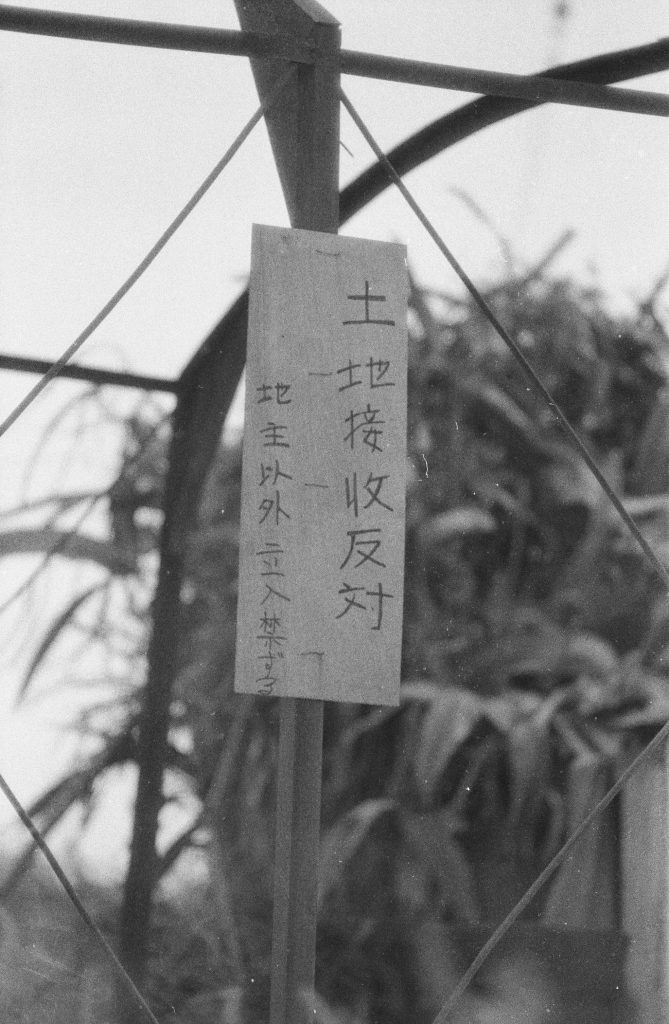 土地接収反対
地主以外立入禁ずる